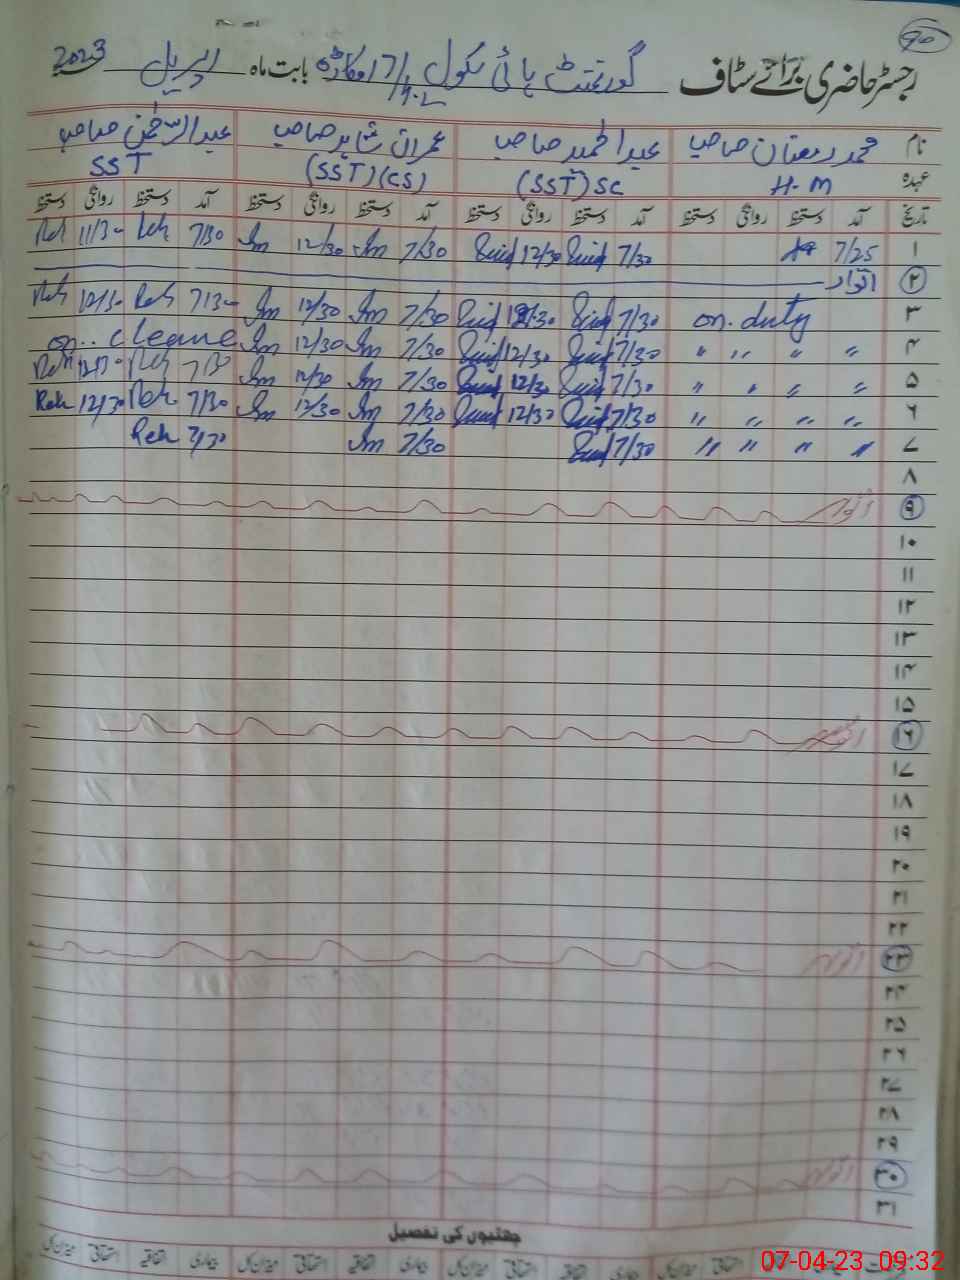 رجسٹر حاضری برائے سٹاف گورنمنٹ ہائی سکول بابت ماہ اپریل 2023
نام محمد رمضان صاحب عبدالحمید صاحب عمران شاہد صاحب عبدالرحمٰن صاحب
عہدہ H.M (SST) Sc (SST) (CS) SST
تاریخ آمد دستخط روانگی دستخط آمد دستخط روانگی دستخط آمد دستخط روانگی دستخط آمد دستخط روانگی دستخط
۱ 7/25 7/30 12/30 7/30 Im 12/30 Im 7/30 Reh 11/30 Reh
۲ اتوار
۳ on. duty 7/30 12/30 7/30 Im 12/30 Im 7/30 Reh 12/30 Reh
۴ " " " " 7/30 12/30 7/30 Im 12/30 Im on.. c leave
۵ " " " " 7/30 12/30 7/30 Im 12/30 Im 7/30 Reh 12/30 Reh
۶ " " " " 7/30 12/30 7/30 Im 12/30 Im 7/30 Reh 12/30 Reh
۷ " " " " 7/30 7/30 Im 7/30 Reh
۸
۹ اتوار
۱۰
۱۱
۱۲
۱۳
۱۴
۱۵
۱۶ اتوار
۱۷
۱۸
۱۹
۲۰
۲۱
۲۲
۲۳ اتوار
۲۴
۲۵
۲۶
۲۷
۲۸
۲۹
۳۰ اتوار
۳۱
چھٹیوں کی تفصیل
بیماری اتفاقیہ استحقاقی میزان کل بیماری اتفاقیہ استحقاقی میزان کل بیماری اتفاقیہ استحقاقی میزان کل
07-04-23 09:32